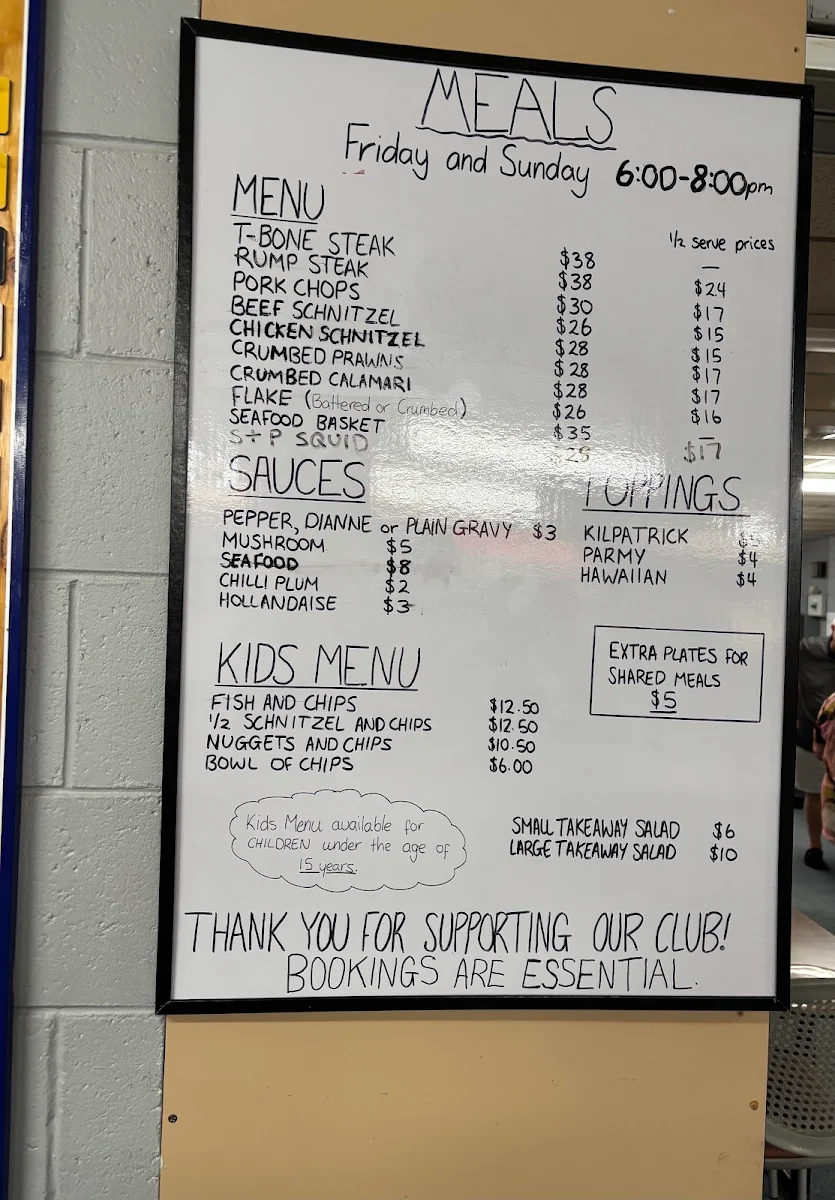 MEALS
Friday and Sunday 6:00-8:00pm
MENU
½ serve prices
T-BONE STEAK $38 —
RUMP STEAK $38 $24
PORK CHOPS $30 $17
BEEF SCHNITZEL $26 $15
CHICKEN SCHNITZEL $28 $15
CRUMBED PRAWNS $28 $17
CRUMBED CALAMARI $28 $17
FLAKE (Battered or Crumbed) $26 $16
SEAFOOD BASKET $35 —
S+P SQUID $17
SAUCES
PEPPER, DIANNE or PLAIN GRAVY $3
MUSHROOM $5
SEAFOOD $8
CHILLI PLUM $2
HOLLANDAISE $3
TOPPINGS
KILPATRICK
PARMY $4
HAWAIIAN $4
EXTRA PLATES FOR
SHARED MEALS
$5
KIDS MENU
FISH AND CHIPS $12.50
½ SCHNITZEL AND CHIPS $12.50
NUGGETS AND CHIPS $10.50
BOWL OF CHIPS $6.00
Kids Menu available for
CHILDREN under the age of
15 years.
SMALL TAKEAWAY SALAD $6
LARGE TAKEAWAY SALAD $10
THANK YOU FOR SUPPORTING OUR CLUB!
BOOKINGS ARE ESSENTIAL.